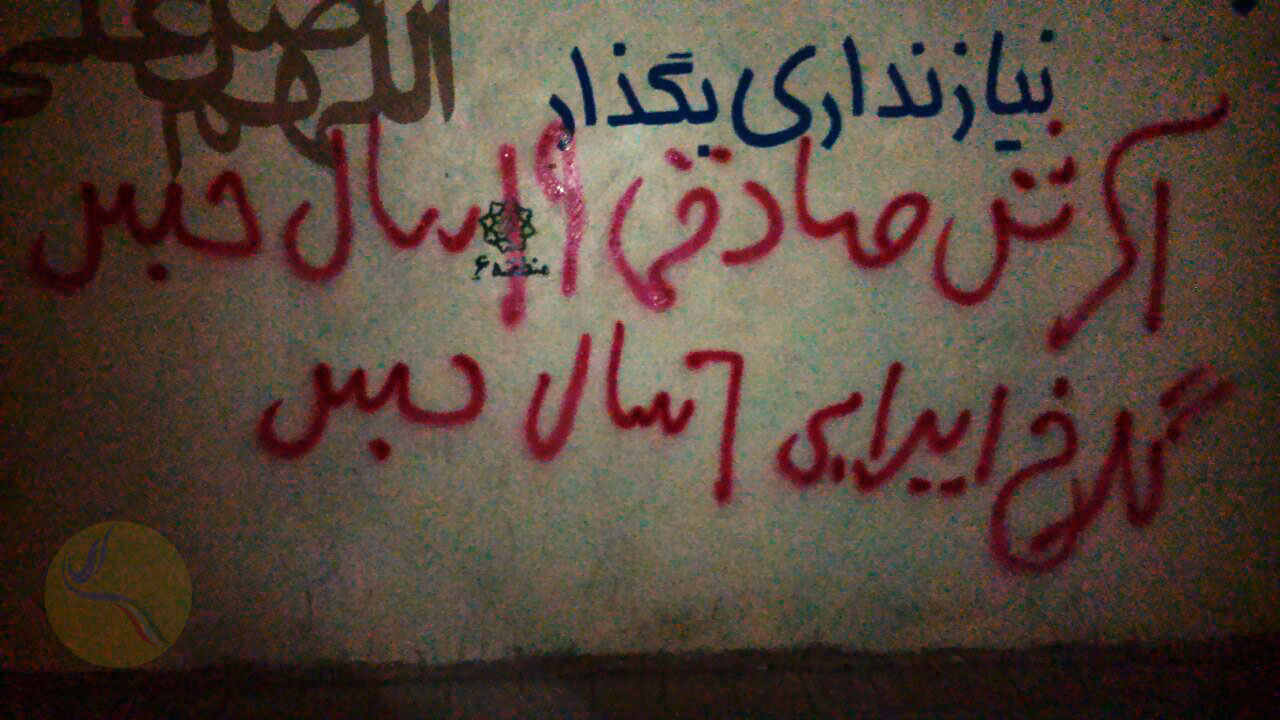 اللهم صل علی
نیاز نداری بگذار
آرش صادقی ۱۹ سال حبس
منطقه ۶
گلرخ ایرایی ۶ سال حبس